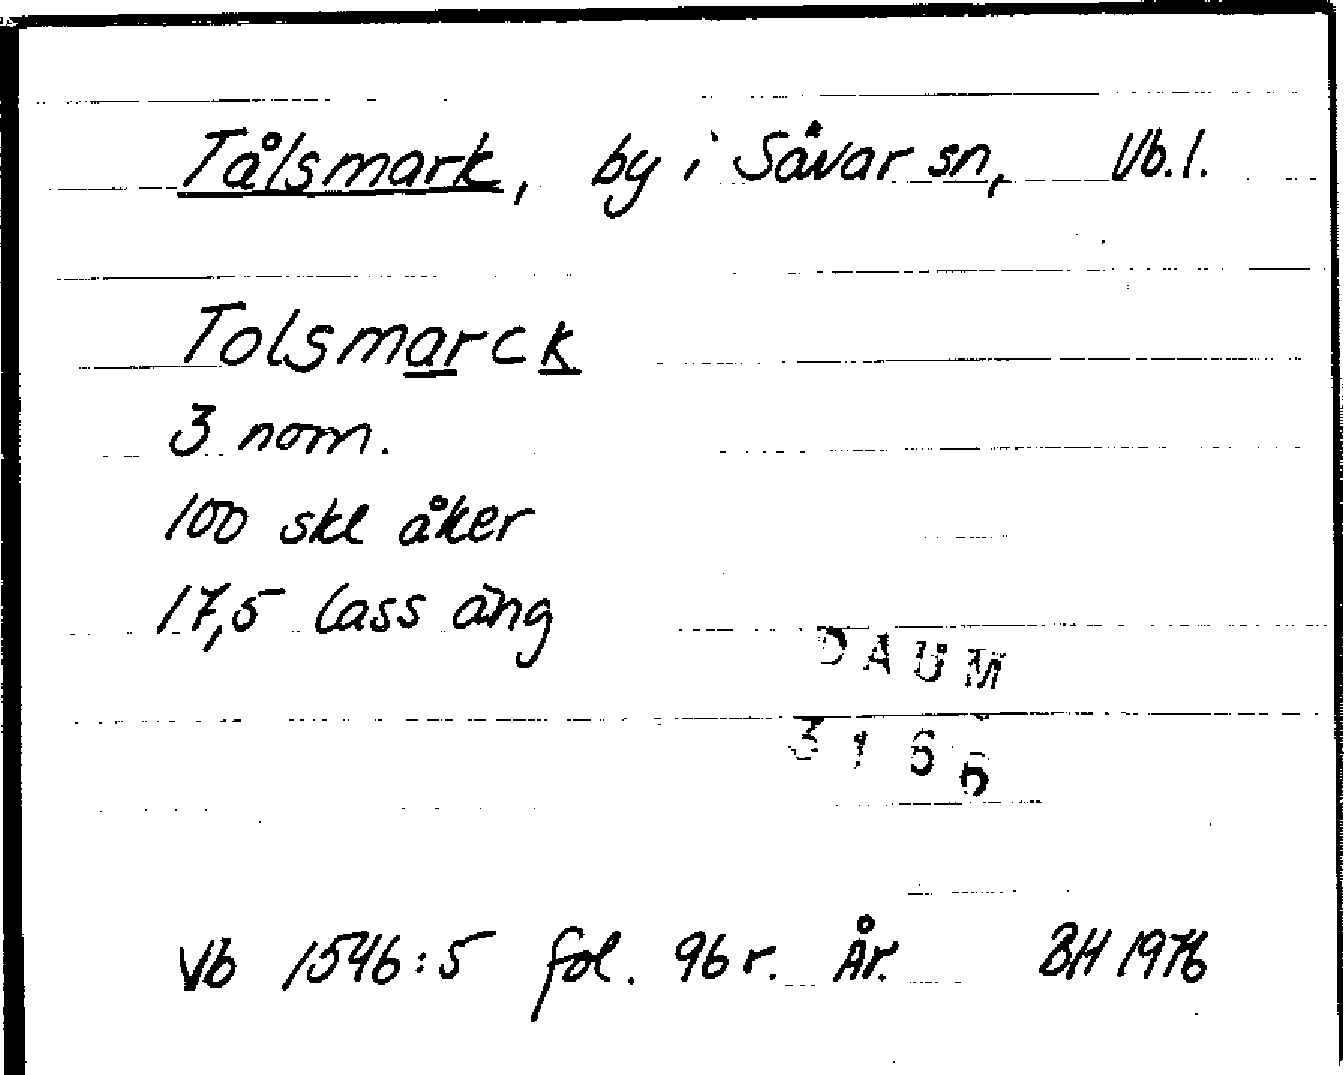 Tålsmark, by i Såvar sn, Vb.l.
Tolsmarck
3 nom.
100 skl åker
17,5 lass äng
DAUM
3166
Vb 1546:5 fol. 96 r. År. BH 1976